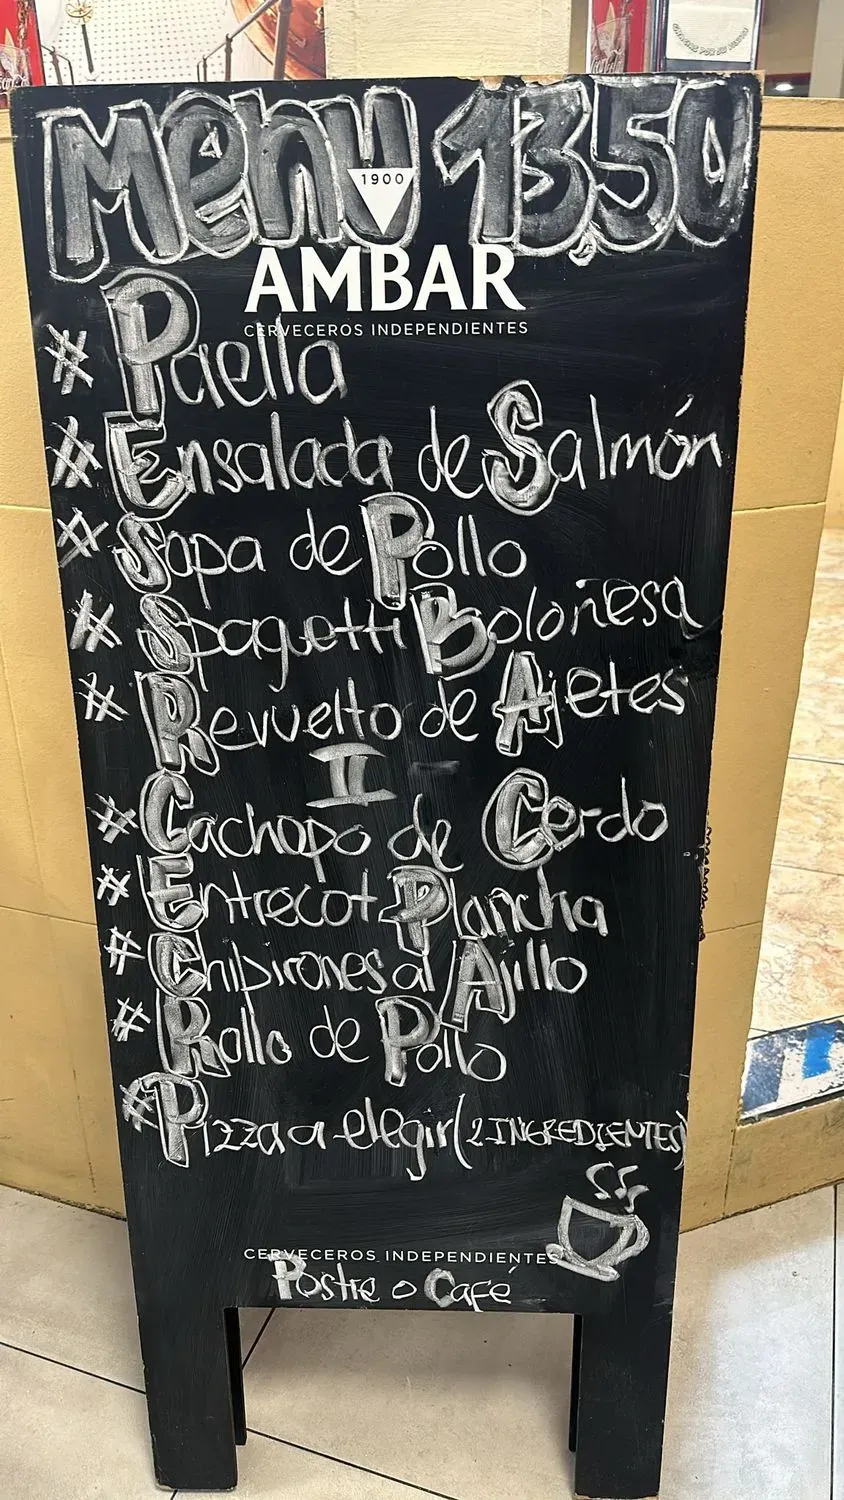 Menu 13,50
1900
AMBAR
CERVECEROS INDEPENDIENTES
# Paella
# Ensalada de Salmón
# Sopa de Pollo
# Spaguetti Boloñesa
# Revuelto de Ajetes
II
# Cachopo de Cerdo
# Entrecot Plancha
# Chipirones al Ajillo
# Rollo de Pollo
# Pizza a elegir (2 INGREDIENTES)
CERVECEROS INDEPENDIENTES
Postre o Café